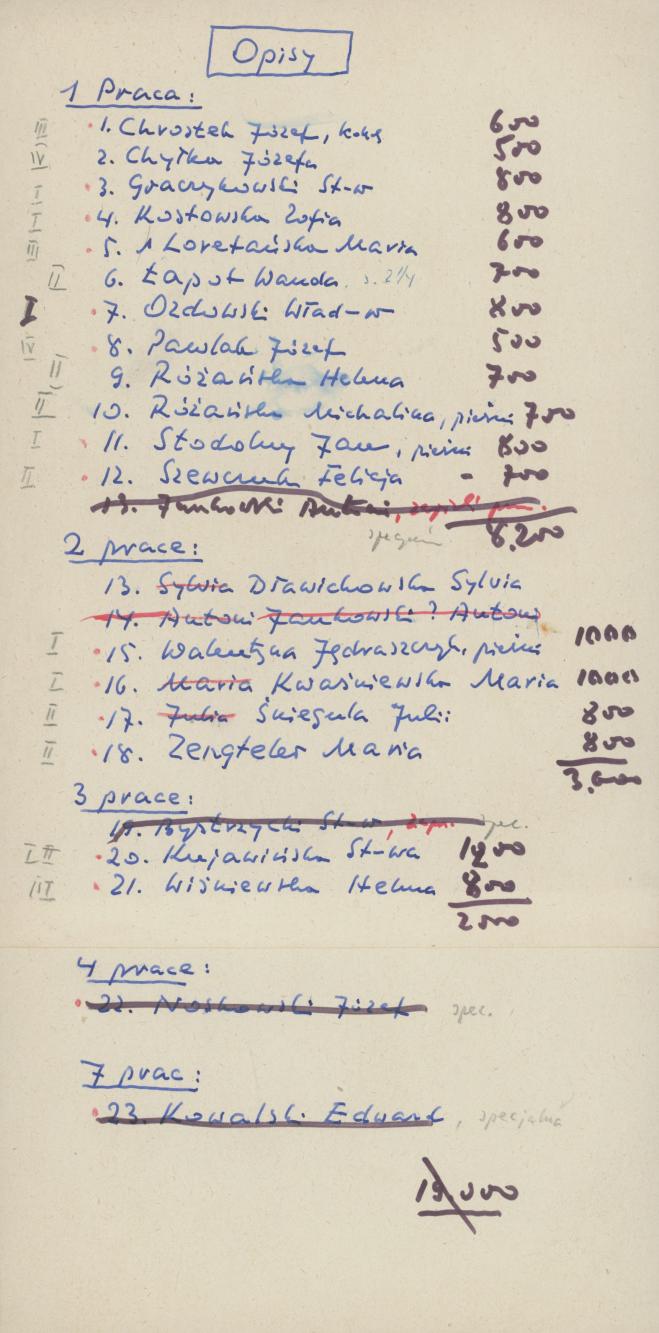 Opisy
1 Praca:
III 1. Chrostek Józef, koks 600
IV 2. Chyłka Józefa 500
I 3. Graczykowski St-w 800
I 4. Kostowska Zofia 800
III 5. Loretańska Maria 600
II 6. Łapot Wanda 700
I 7. Ozdowski Wład-w 800
IV 8. Pawlak Józef 500
II 9. Różańska Helena 700
II 10. Różańska Michalina, pieśni 700
I 11. Stodolny Jan, pieśni 800
II 12. Szewczuk Felicja - 700
13. Jankowski Antoni,
8.200
2 prace:
13. Sylwia Dławichowska Sylwia
14. Antoni Jankowski? Antoni
I 15. Walentyna Jędraszczyk, pieśni 1000
I 16. Maria Kwaśniewska Maria 1000
II 17. Julia Śniegula Julii 800
II 18. Zengteler Maria 800
3.600
3 prace:
19. Bystrzycki St-w, spec.
20. Krajewińska St-wa 1200
III 21. Wiśniewska Helena 800
2000
4 prace:
22. Noskowski Józef spec.
7 prac:
23. Kowalski Edward, specjalna
19.000